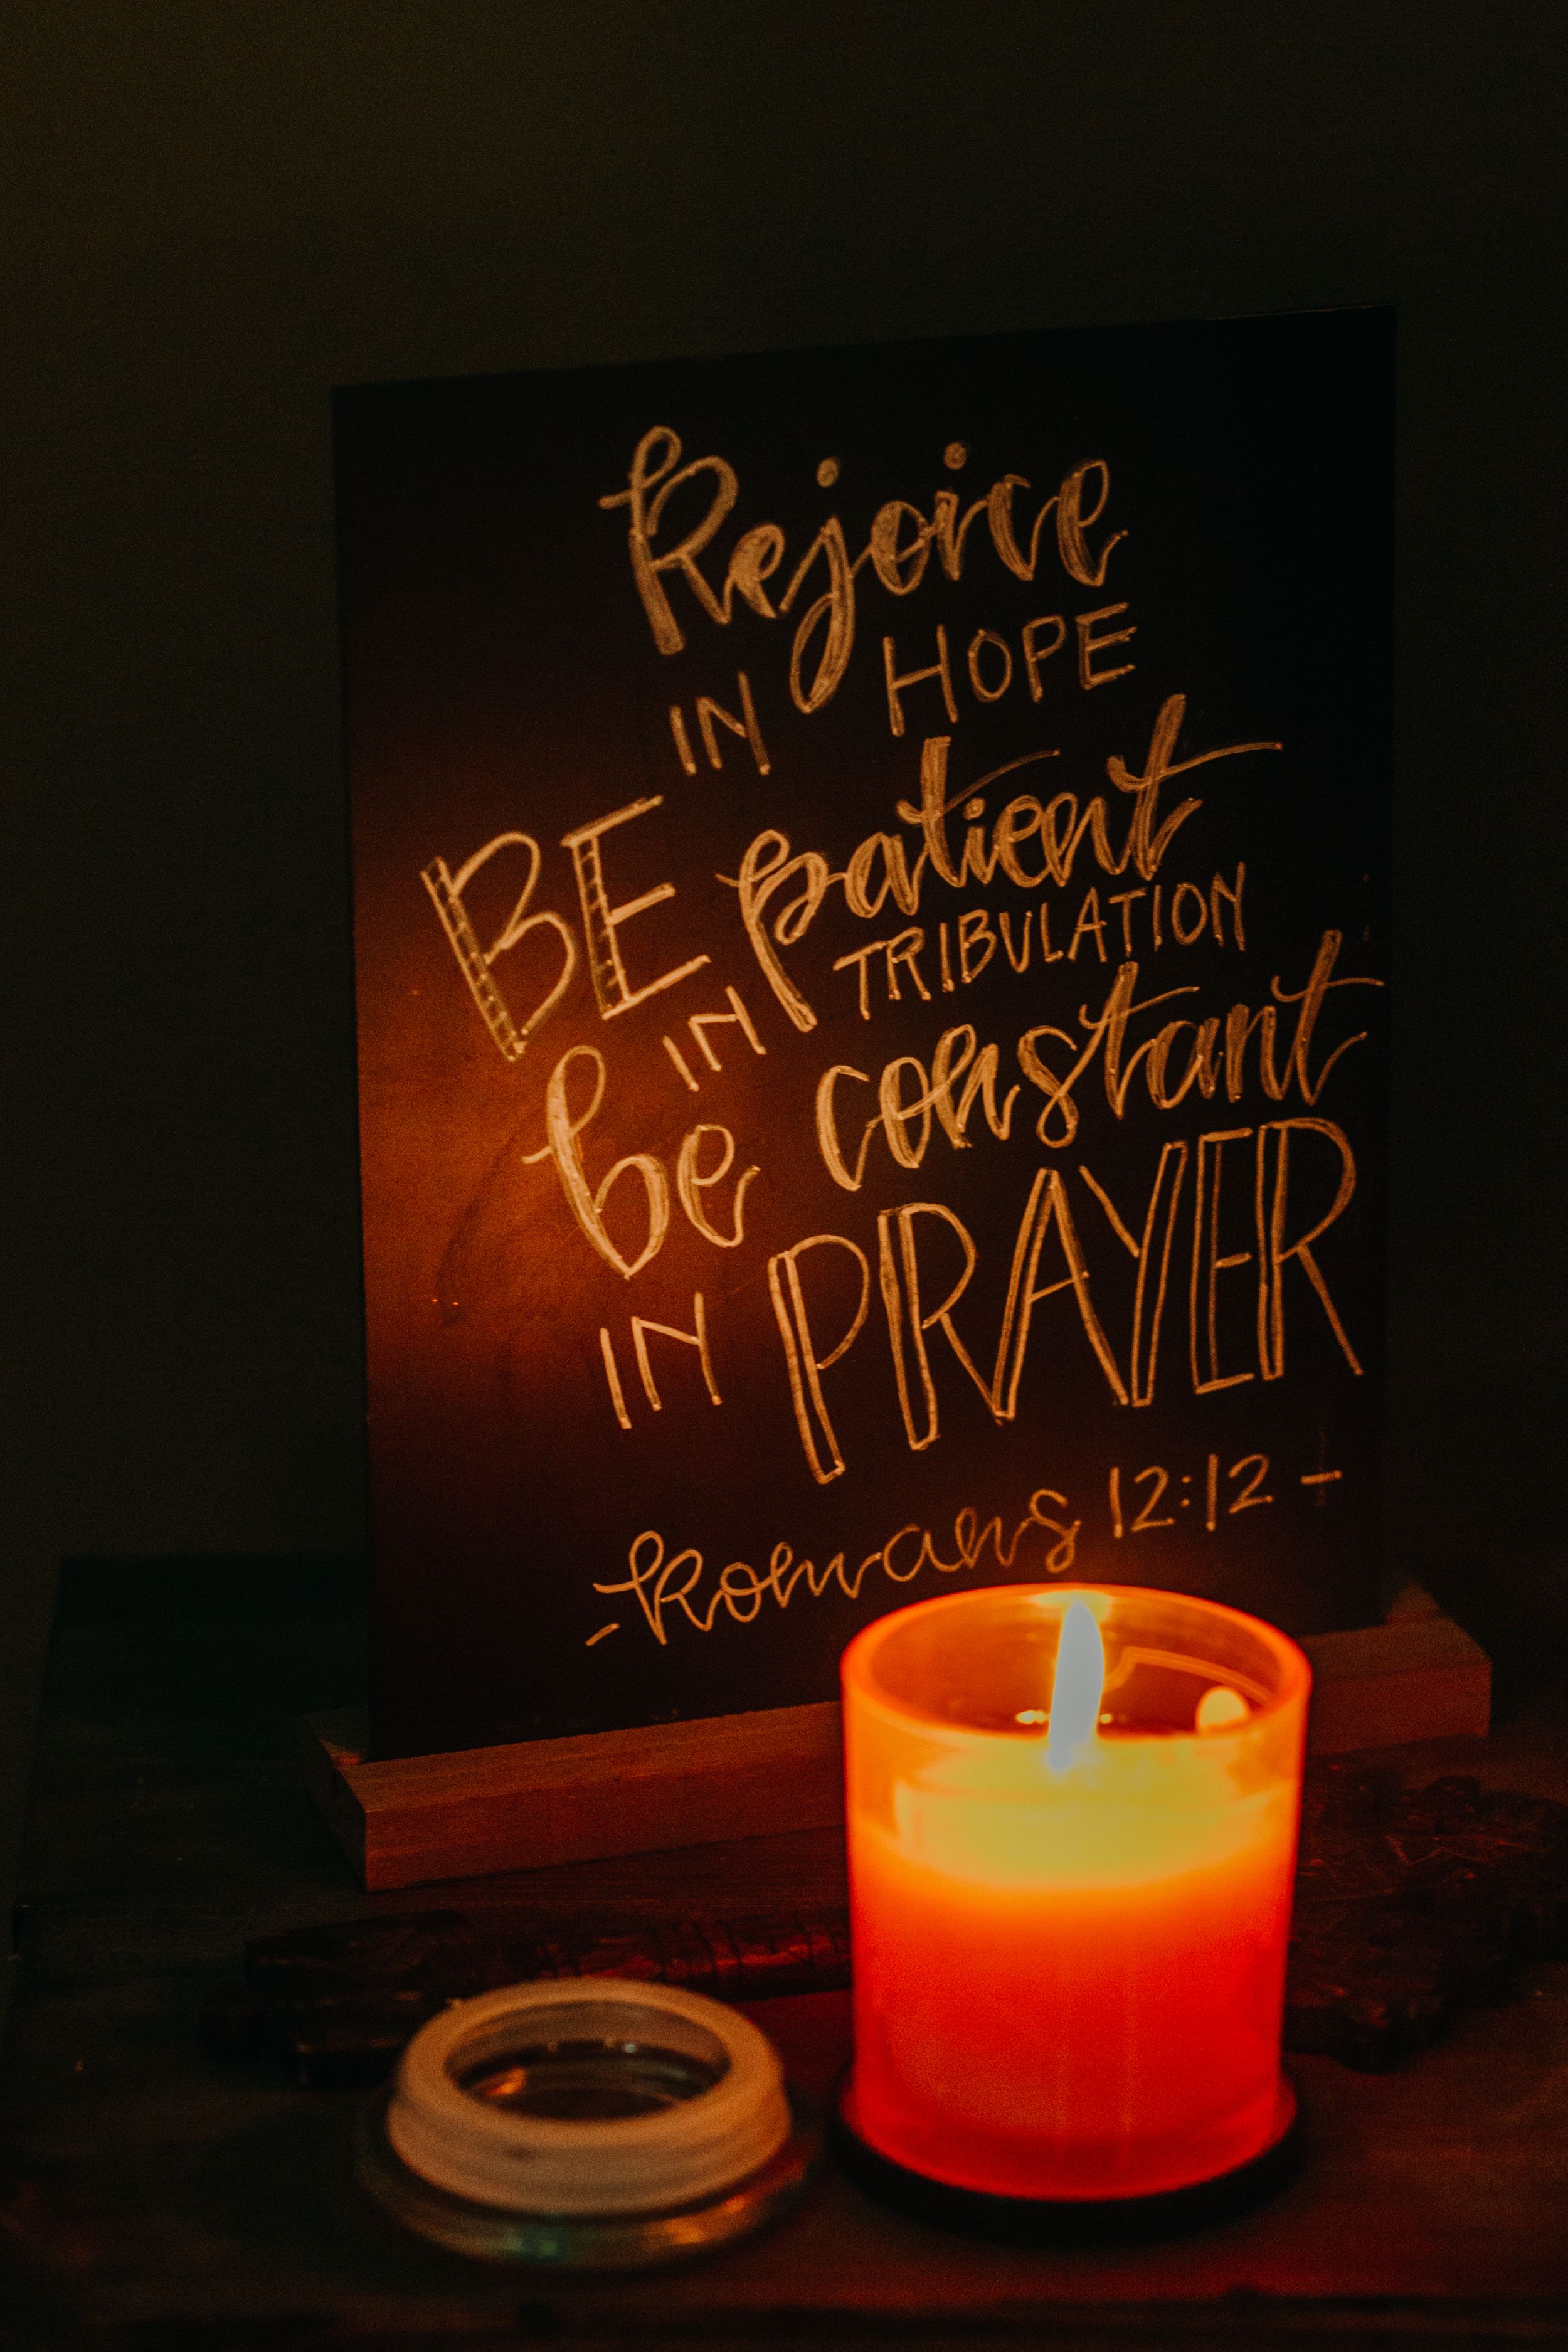 Rejoice
IN HOPE
BE patient
IN TRIBULATION
be constant
IN PRAYER
-Romans 12:12-